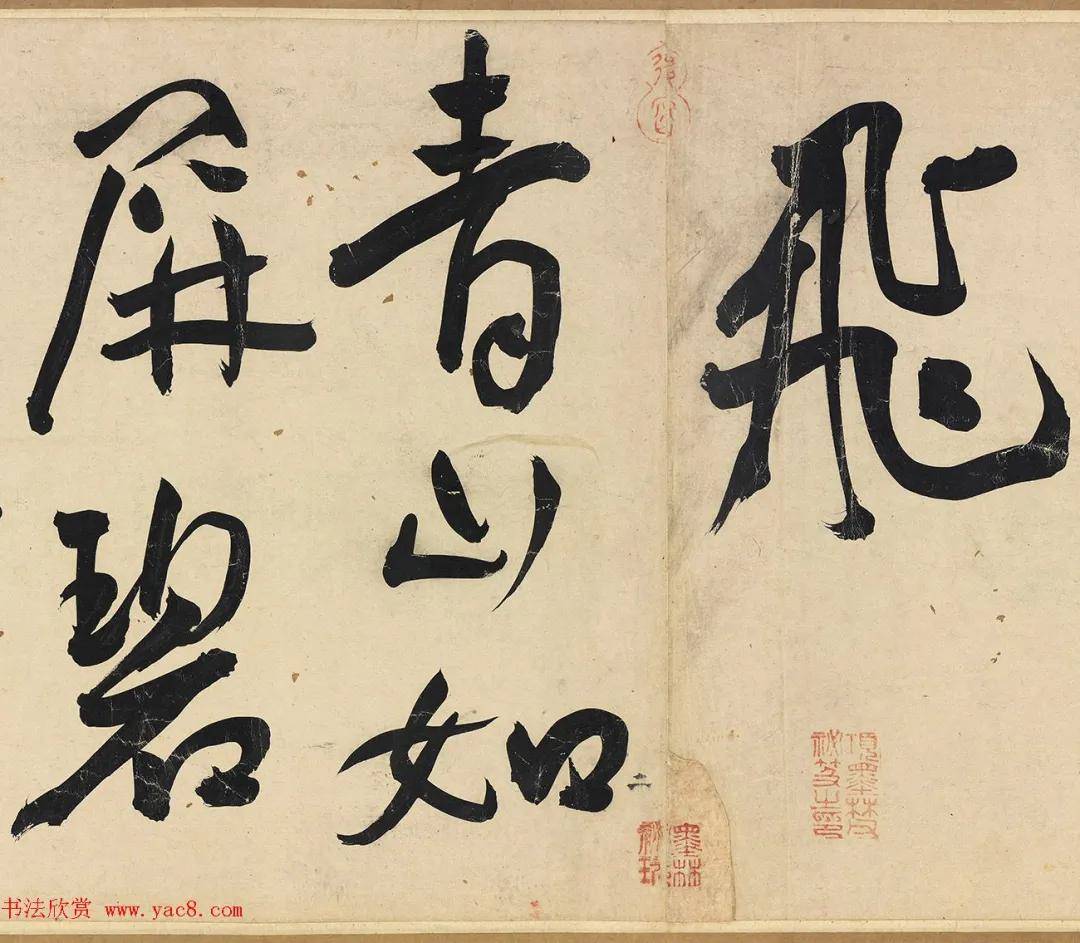 飛
青山如
屏碧
二
項墨林父
祕笈之印
墨林
祕玩
书法欣赏 www.yac8.com